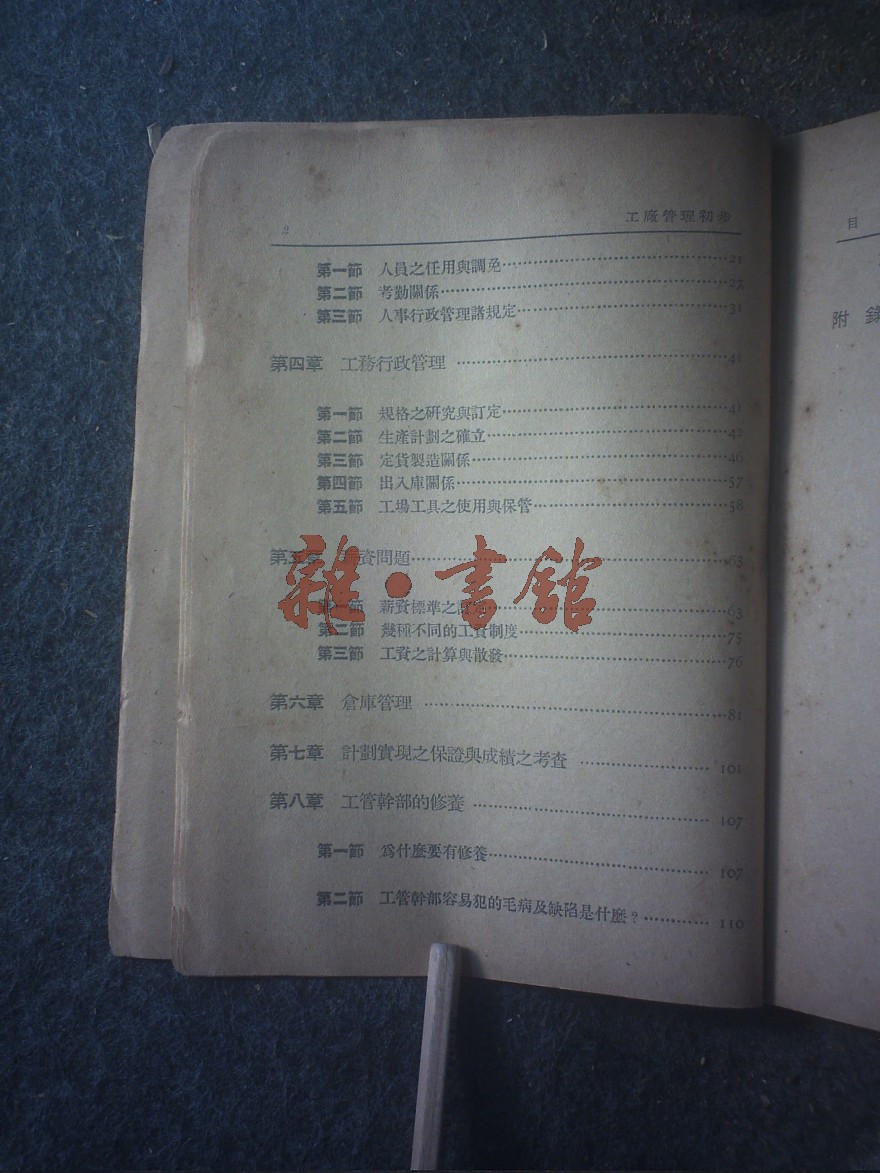 2 工廠管理初步
第一節 人員之任用與調免 21
第二節 考勤關係 27
第三節 人事行政管理諸規定 31
第四章 工務行政管理 41
第一節 規格之研究與訂定 41
第二節 生產計劃之確立 42
第三節 定貨製造關係 46
第四節 出入庫關係 57
第五節 工場工具之使用與保管 58
第五章 資問題 63
第一節 薪資標準之 63
第二節 幾種不同的工資制度 75
第三節 工資之計算與散發 76
第六章 倉庫管理 81
第七章 計劃實現之保證與成績之考查 101
第八章 工管幹部的修養 107
第一節 爲什麼要有修養 107
第二節 工管幹部容易犯的毛病及缺陷是什麼？ 110
雜·書館
目
附錄